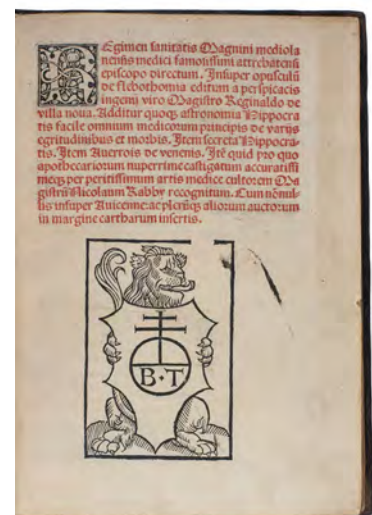 REgimen sanitatis Magnini mediola
nensis medici famosissimi attrebatensi
episcopo directum. Insuper opusculū
de flebothomia editum a perspicacis
ingenij viro Magistro Reginaldo de
villa noua. Additur quoqȝ astronomia Hippocra
tis facile omnium medicorum principis de varijs
egritudinibus et morbis. Item secreta Hippocra-
tis. Item Auerrois de venenis. Itē quid pro quo
apothecariorum nuperrime castigatum accuratissi
meqȝ per peritissimum artis medice cultorem Ma
gistrū Nicolaum Rabby recognitum. Cum nōnul-
lis insuper Auicenne: ac plerūqȝ aliorum auctorum
in margine cartharum insertis.
B·T